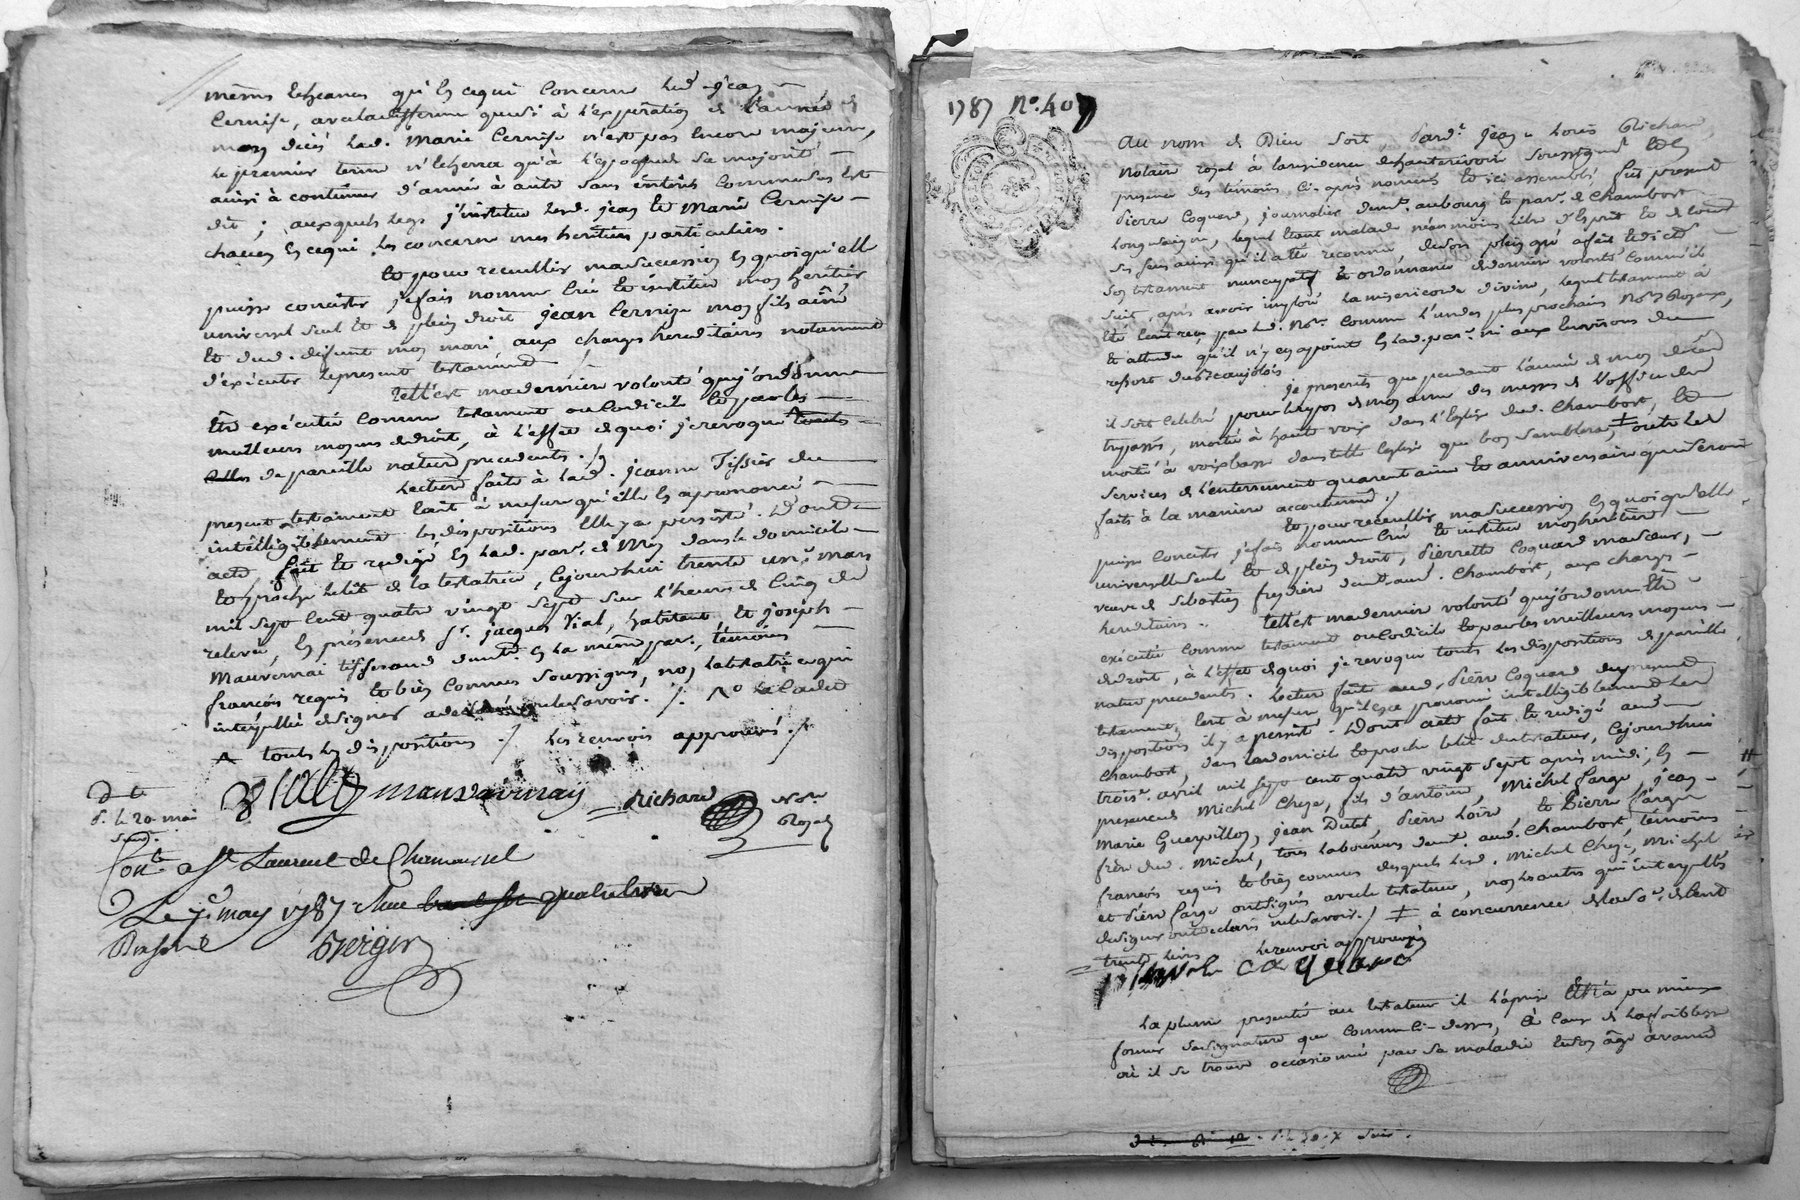 mêmes echeances qu'en cequi concerne led. jean
Cernise, avec la différence que si à l'expiration de l'année de
mon décès lad. Marie Cernise n'est pas encore majeure,
le premier terme n'echerra qu'à l'epoque de sa majorité
ainsi à continuer d'année à autre sans intérêts comme dessus est
dit ; auxquels legs j'institue lesd. jean et Marie Cernise
chacun en cequi les concerne mes heritiers particuliers.
Et pour recueillir ma succession en quoi qu'elle
puisse concister, je fais nomme crée et institue mon heritier
universel seul et de plein droit jean Cernise mon fils ainé
et dud. défunt mon mari aux charges hereditaires notament
d'executer le present testament
Telle est ma dernière volonté que j'ordonne
être exécutée comme testament ou codicile et par les
meilleurs moyens de droit, à l'effet de quoi je revoque toutes
celles de pareille nature precedentes ./.
Lecture faite à lad. jeanne Tissier du
present testament écrit à mesure qu'elle en a prononcé
intélligiblement les dispositions elle y a persisté. Dont
acte fait et redigé en lad. par. de dans le domicile
et proche le lit de la testatrice, cejourd'hui trente un. mars
mil sept cent quatre vingt sept sur l'heure de cinq de
relevée, en présence de sr. jacques Vial, habitant, et joseph
Mauvernai tisserand demt. en la même par. témoins
françois requis et bien connus soussignés, non la testatrice qui
intérpellée de signer a declaré ne le savoir. /.
^ toutes les dispositions ./. les renvois approuvés ./.
Vial mauvairnay Richard Nore.
Royal
D. le 20 mai
Cont. a St. Laurent de Chamousset
Le 7. may 1787 Reçu quatre livres
1787 No. 40
Au nom de Dieu soit Pardt. jean Louis Richard,
Notaire royal à la residence de hauterivoire soussigné et en
presence des témoins ci-après nommés et ici assemblés, fut present
Pierre Coquard, journalier demt. au bourg et par. de Chambost
Longesaigne, lequel étant malade néanmoins libre d'esprit et de tous
ses sens ainsi qu'il a été reconnu de son plein gré a fait et dicté
son testament nuncupatif et ordonnance de derniere volonté comme il
suit, après avoir imploré la misericorde divine, lequel testament à
été écrit reçu par led. Nore. comme l'un des plus prochains Nores. Royaux,
et attendu qu'il n'y en a point en lad. par. ni aux environs du
ressort du Beaujolois.
je prescris que pendant l'année de mon décès
il soit celebré pour le repos de mon ame des messes de l'office des
trepassés, moitié à haute voix dans l'Eglise dud. Chambost, et
moitié à voix basse dans telle église que bon semblera, ‡ outre les
services de l'enterrement quarantaine et anniversaire qui seront
faits à la maniere accoutumée ./.
Et pour recueillir ma succession en quoi qu'elle
puisse concister je fais nomme crée et institue mon heritiere
universelle seule et de plein droit, Pierrette Coquard ma sœur,
veuve de Sebastien demt. aud. Chambost, aux charges
hereditaires. Telle est ma derniere volonté que j'ordonne être
exécutée comme testament ou codicile et par les meilleurs moyens
de droit, à l'effet de quoi je revoque toutes les dispositions de pareille
nature precedentes. Lecture faite aud. Pierre Coquard du present
testament, écrit à mesure qu'il en a prononcé intelligiblement les
dispositions il y a persisté. Dont acte fait et redigé aud.
Chambost, dans le domicile et proche le lit du testateur, cejourd'hui
trois. avril mil sept cent quatre vingt sept après midi, en
presence de Michel Cheze, fils d'antoine, Michel Farge, jean
Marie Guerpillon, jean Dutel, Pierre et Pierre Farge
frère dud. Michel, tous laboureurs demt. aud. Chambost, témoins
françois requis et bien connus desquels lesd. Michel Cheze, Michel
et Pierre Farge ont signés avec le testateur, non les autres qui interpellés
de signer ont declaré ne le savoir. / ‡ à concurrence de la so. de cent
trente livres le renvoi approuvé
coquard
La plume presentée au testateur il l'a prise et n'a pu mieux
former sa signature que comme ci-dessus, à cause de la foiblesse
où il se trouve occasionnée par sa maladie et son âge avancé